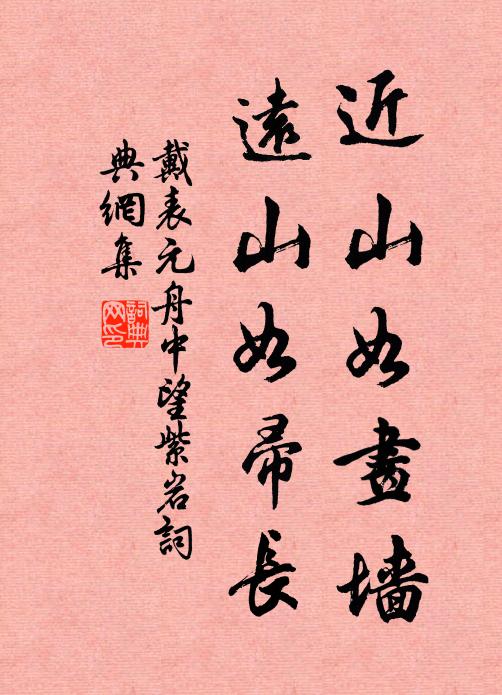 近山如畫墙
遠山如帚長
戴表元舟中望紫岩詞
典網集
詞典
网印